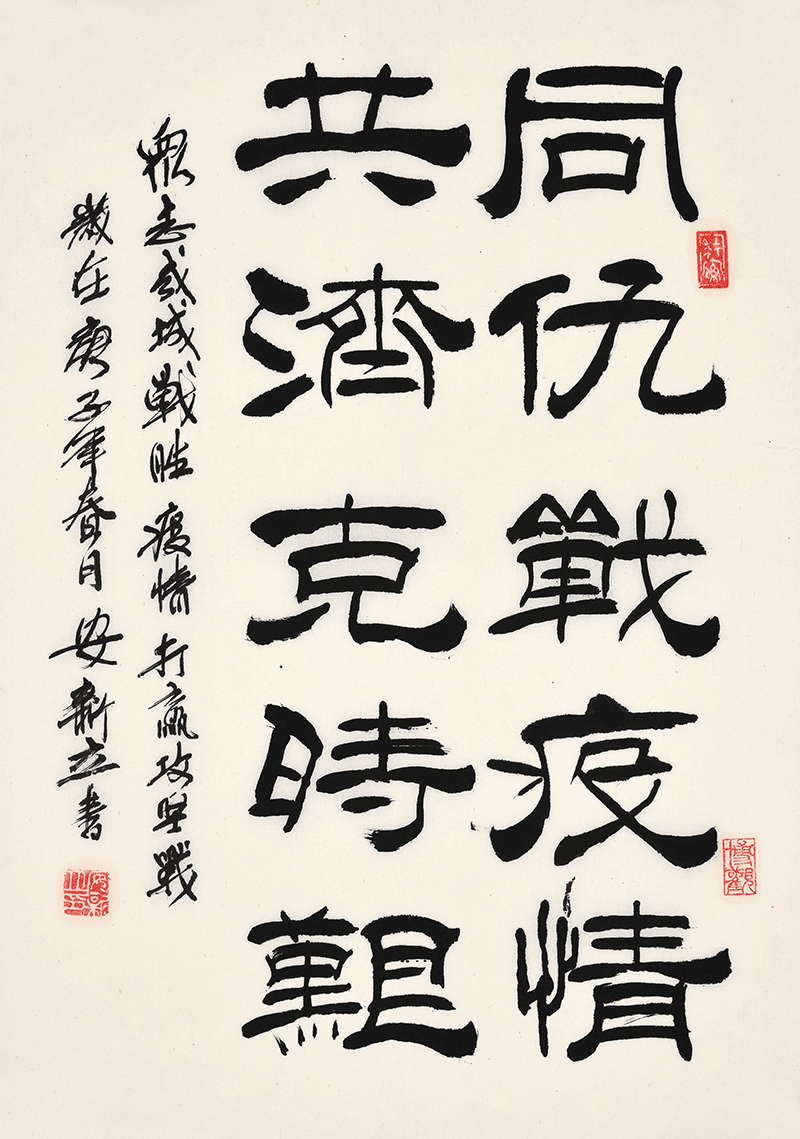 同仇戰疫情
共濟克時艱
眾志成城戰胜疫情打贏攻堅戰
歲在庚子年春月安立書
博觀